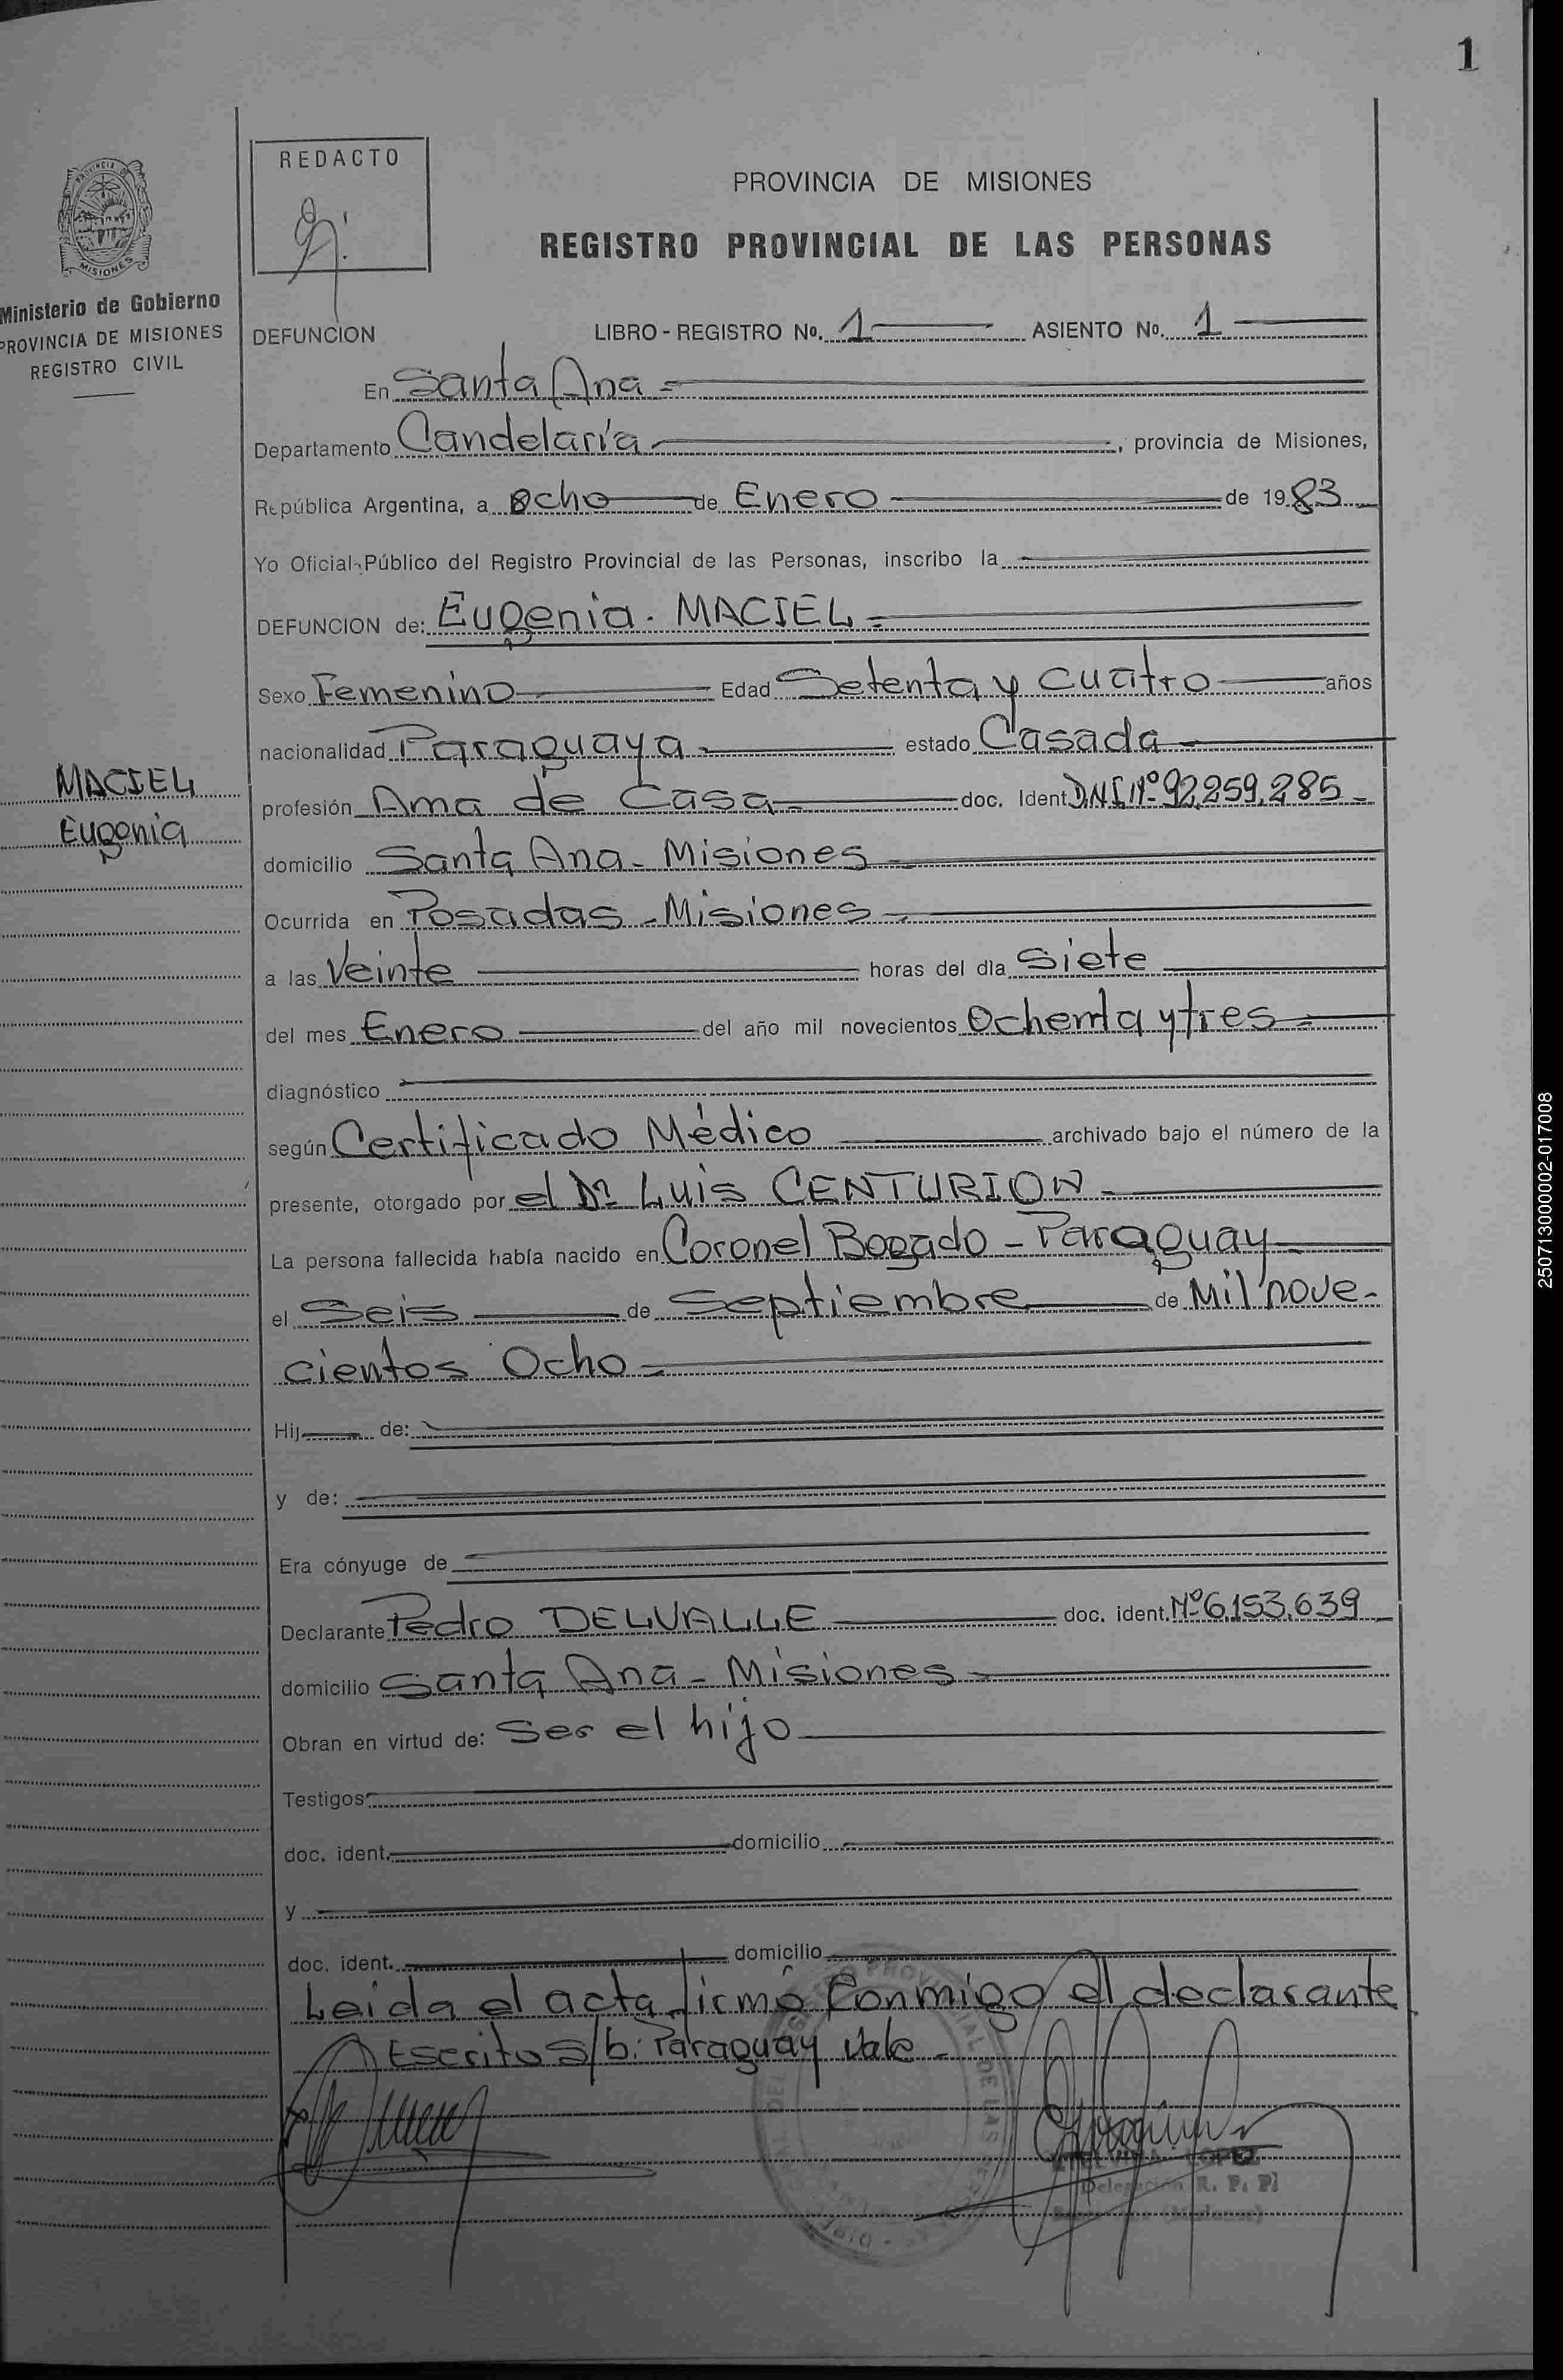 1
REDACTO
PROVINCIA DE MISIONES
REGISTRO PROVINCIAL DE LAS PERSONAS
PROVINCIA DE
MISIONES
Ministerio de Gobierno
PROVINCIA DE MISIONES
REGISTRO CIVIL
DEFUNCION LIBRO - REGISTRO No. 1 ASIENTO No. 1
En Santa Ana
Departamento Candelaria, provincia de Misiones,
República Argentina, a ocho de Enero de 1983
Yo Oficial Público del Registro Provincial de las Personas, inscribo la
DEFUNCION de: Eugenia. MACIEL
Sexo Femenino Edad Setenta y cuatro años
nacionalidad Paraguaya estado Casada
MACIEL
Eugenia
profesión Ama de Casa doc. Ident D.N.I. Nº 92,259,285
domicilio Santa Ana - Misiones
Ocurrida en Posadas - Misiones
a las Veinte horas del día Siete
del mes Enero del año mil novecientos Ochenta y tres
diagnóstico
según Certificado Médico archivado bajo el número de la
presente, otorgado por el Dr Luis CENTURION
La persona fallecida había nacido en Coronel Bogado - Paraguay
el Seis de Septiembre de Mil nove-
cientos Ocho
Hij de:
y de:
Era cónyuge de
Declarante Pedro DELVALLE doc. ident. Nº 6.153.639
domicilio Santa Ana - Misiones
Obran en virtud de: Ser el hijo
Testigos
doc. ident. domicilio
y
doc. ident. domicilio
Leida el acta firmó Conmigo el declarante
Escrito s/b: Paraguay Vale
LOPEZ
Delegación R. P. P.
250713000002-017008